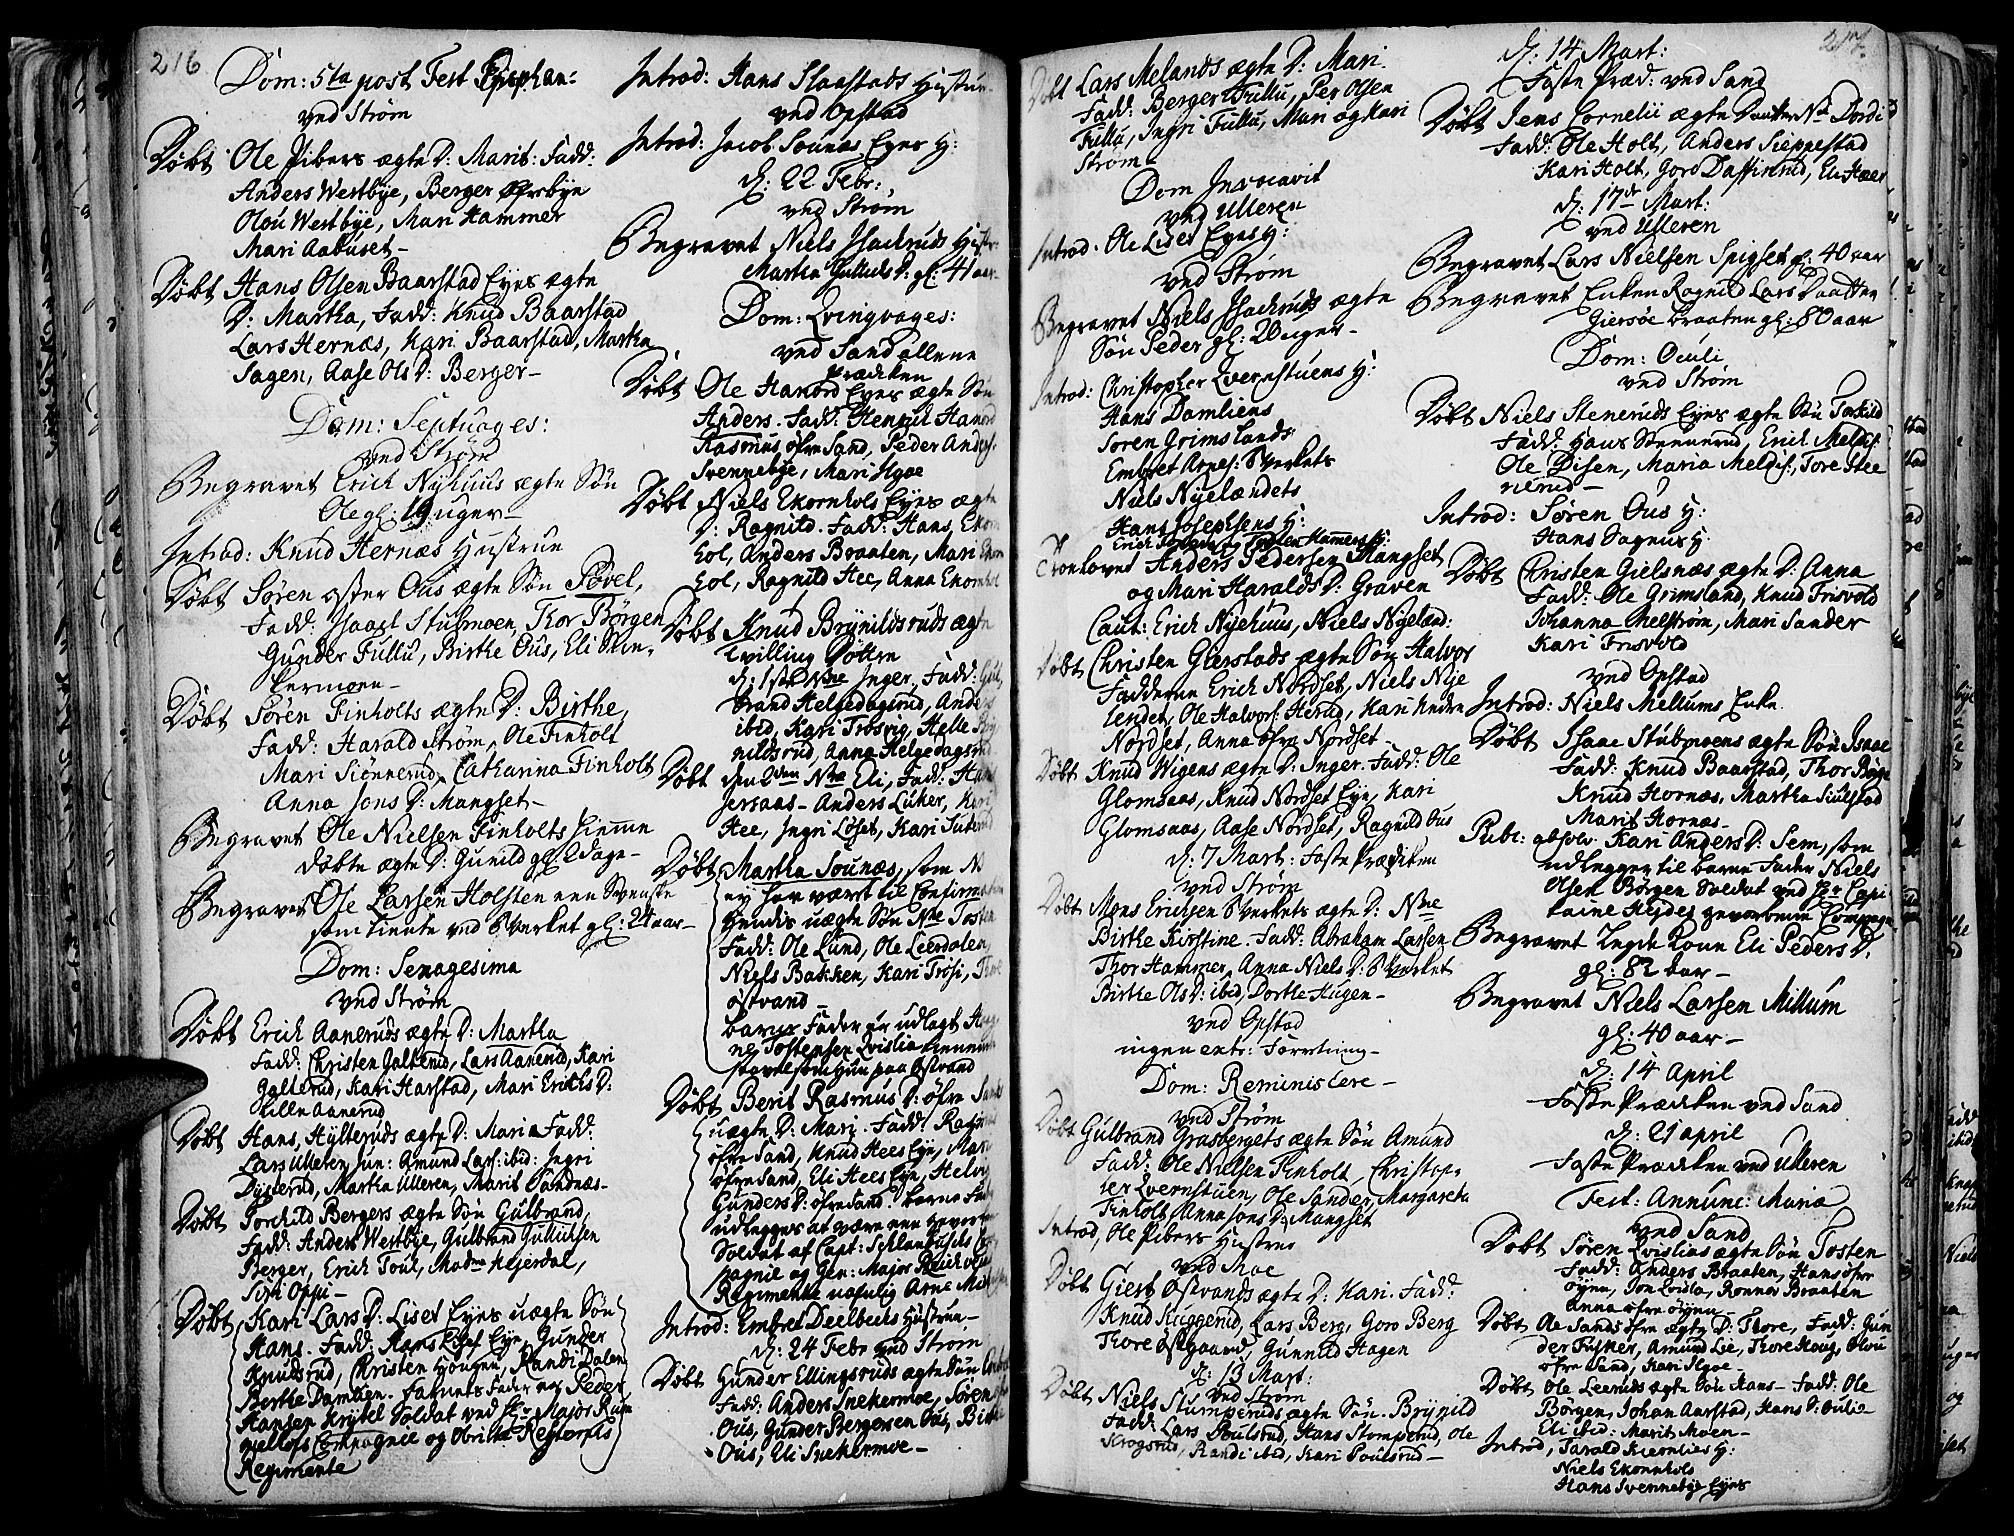 216
Dom: 5ta post Fest Epiphan:
ved Strøm
Døbt Ole Pibers ægte D: Marit: Fadd:
Anders Westbye, Berger Øfrebye
Olou Westbye, Mari Hammer
Mari Aabuset-
Døbt Hans Olsen Baarstad Eyes ægte
D: Martha, Fadd: Knud Baarstad
Lars Hernæs, Kari Baarstad, Martha
Sagen, Aase Ols D: Berger-
Dom: Septuages:
ved Strøm
Begravet Erich Nyhuus ægte Søn
Ole gl: 19 uger-
Introd: Knud Hernæs Hustrue
Døbt Søren øster Ous ægte Søn Povel,
Fadd: Isaach Stubmoen, Thor Børgen
Gunder Fullu, Birthe Ous, Eli Skin-
kermoen-
Døbt Søren Finholts ægte D: Birthe,
Fadd: Harald Strøm, Ole Finholt
Mari Siønnerud, Catharina Finholt
Anna Jons D: Mangset-
Begravet Ole Nielsen Finholts hiemme
døbte ægte D: Gunild gl: 2 dage-
Begravet Ole Larsen Holsten een Svenske
som tiente ved Sverket gl: 24 aar-
Dom: Sexagesima
ved Strøm
Døbt Erich Aaneruds ægte D: Martha
Fadd: Christen Galterud, Lars Aanerud, Kari
Galterud, Kari Harstad, Mari Erichs D:
Lille Aanerud
Døbt Hans Hylteruds ægte D: Maria Fadd:
Lars Ulleren Jun: Amund Lars: ibid: Ingri
Dysterud, Martha Ulleren, Marit Sandnæs-
Døbt Torchild Bergers ægte Søn Gulbrand,
Fadd: Anders Westbye, Gulbrand Gulliksen
Berger, Erich Toul, Madme Hejerdal,
Siri Oppi-
Døbt Kari Lars D: Liset Eyes uægte Søn
Hans. Fadd: Hans Liset Eye, Gunder
Knudsrud, Christen Hougen, Randi Dalen
Berthe Damlien. Barnets Fader er Peder
Hansen Krytel Soldat ved Hr Major Rum
mellofs Compagnie og Obriste
Regimente
Introd: Hans Slaastads Hustrue
ved Opstad
Introd: Jacob Sounæs Eyes H:
d: 22 Febr:
ved Strøm
Begravet Niels Isachruds Hustr:
Martha Gulluds D: gl: 41 aar-
Dom: Qvinqvages:
ved Sand allene
Prædiken
Døbt Ole Hanord Eyes ægte Søn
Anders. Fadd: Henrik Hanord
Rasmus øfre Sand, Peder Anders:
Svennebye, Mari Moe
Døbt Niels Ekornhols Eyes ægte
D: Ragnild. Fadd: Hans Ekorn
hol, Anders Braaten, Mari Ekorn
hol, Ragnild Hee, Anna Ekornhol
Døbt Knud Brynildsruds ægte
Tvilling Døttre
d: 1ste Nme Inger, Fadd: Gul
brand Helgedagsrud, Anders
ibid, Kari Trosvig, Helle Bry
nildsrud, Anna Helgedagsrud
Døbt den 2den Nme Eli, Fadd: Hans
Jersaas- Anders Luker, Kari
Hee, Ingri Løset, Kari
Døbt Martha Sounæs, som
ey har været til Confirmation
hendis uægte Søn Nme Tosten
Fadd: Ole Lund, Ole Leerdalen
Niels Bakken, Kari Trøsi,
østvand-
barnes Fader er udlagt
Tostensen Qvislia
som hun paa Østvand
Døbt Berit Rasmus D: øfre Sand
uægte D: Mari. Fadd: Rasmus
øfre Sand, Knud Hees Eye, Mari
øfre Sand, Eli Hees Eye, Helvig
Gunders D: øfre Sand. barne Fader
udlegges at være een
Soldat af Capt: Com
pagnie og Gen: Major
Regimente nafnlig Arne
Introd: Embret Deelbechs Hustrue-
d: 24 Febr ved Strøm
Døbt Gunder Ellingsruds ægte Søn
Fadd: Anders Snekermoe, Søren
Ous, Gunder Bergersen Ous, Birthe
Ous, Eli Snekermoe-
217.
Døbt Lars Melands ægte D: Mari.
Fadd: Berger Fullu, Per Olsen
Fullu, Ingri Fullu, Mari og Kari
Strøm-
Dom Invocavit
ved Ulleren
Introd. Ole Liset Eyes H:
ved Strøm
Begravet Niels Isachruds ægte
Søn Peder gl: 2 uger-
Introd: Christopher Qvernstuens H:
Hans Damliens
Søren Grimslands
Embret Arnes: Sverkets
Niels Nyelændets
Hans Josephsens H:
Trolovet Anders Pedersen Mangset
og Mari Haralds D: Graven
Caut: Erich Nyehuus, Niels Nyeland:
Døbt Christen Gierstads ægte Søn Halvor
Fadderne Erich Nordset, Niels Nye
lendet, Ole Halvors: Herud, Kari Nedre
Nordset, Anna øfre Nordset-
Døbt Knud Wigens ægte D: Inger. Fadd: Ole
Glomsaas, Knud Nordset Eye, Kari
Glomsaas, Aase Nordset, Ragnild Ous
d: 7 Mart: Faste Prædiken
ved Strøm
Døbt Mons Erichsen Sverkets ægte D: Nme
Birthe Kirstine. Fadd: Abraham Larsen
Thor Hammer, Anna Niels D: Sverket
Birthe Ols D: ibid, Dorthe Hugen-
ved Opstad
ingen extr: Forretning-
Dom: Reminiscere-
ved Strøm
Døbt Gulbrand Grasbergets ægte Søn Amund
Fadd: Ole Nielsen Finholt, Christop-
her Qvernstuen, Ole Sander, Margareta
Finholt Anna Jons D: Mangset
Introd, Ole Pibers Hustrue
ved Moe
Døbt Giert Østvands ægte D: Kari. Fadd:
Knud Kuggerud, Lars Berg, Goro Berg
Thore Østgaard, Gunnild Hagen
d: 13 Mart:
ved Strøm
Døbt Niels Stumperuds ægte Søn Brynild
Fadd: Lars Poulsrud, Hans Stomperud, Ole
Krogsrud, Randi ibid, Kari Poulsrud-
d: 14 Mart:
Faste Præd: ved Sand
Døbt Jens Cornelii ægte Daatter Ne Dordi
Fadd: Ole Holt, Anders Sieppestad
Kari Holt, Goro Daffinrud, Eli Haer
d: 17de Mart:
ved Ulleren
Begravet Lars Nielsen Spigset gl: 40 aar
Begravet Enken Ragnild Lars Daatter
Giersøe braaten gl: 80 aar
Dom: Oculi
ved Strøm
Døbt Niels Steneruds Eyes ægte Søn Torkild
Fadd: Hans Stennerud, Erich Meldis:
Ole Disen, Maria Meldis:, Tore Ste
nerud-
Introd: Søren Ous H:
Hans Sagens H:
Døbt Christen Gielsnæs ægte D: Anna
Fadd: Ole Grimsland, Knud Frisvold
Johanna Melstrøm, Mari Sander
Kari Frisvold
ved Opstad
Introd: Niels Mellums Enke.
Døbt Isaac Stubmoens ægte Søn Isaac
Fadd: Knud Baarstad, Thor Børge
Knud Hornæs, Martha Siulstad
Marit Hornæs-
Publ: absolv. Kari Anders D: Sem, som
udlegger til barne Fader Niels
Olsen Børgen Soldat ved Hr Capi
taine Heydes gevorbene Compagn:
Begravet Inqvarteret Eli Peders D:
gl: 82 aar-
Begravet Niels Larsen Millum
gl: 40 aar-
d: 14 April
Faste Prædiken ved Sand
d: 21 april
Faste Prædiken ved Ulleren
Fest: Annunc: Mariæ
ved Sand
Døbt Søren Qvislias ægte Søn Tosten
Fadd: Anders Braaten, Hans øfre
øyen, Jon Qvisla, Ronnov Braaten
Anna øfre øyen-
Døbt Ole Sands øfre ægte D: Thore, Fadd: Gun
der Fusker, Amund Lie, Thore Houg, Olou
øfre Sand, Kari Moe-
Døbt Ole Leeruds ægte Søn Hans- Fadd: Ole
Børgen, Johan Aarstad, Hans D: Julie
Eli ibid: Marit Moen-
Introd, Tarald Kiernlies H:
Niels Ekornhols
Hans Svennebye Eyes